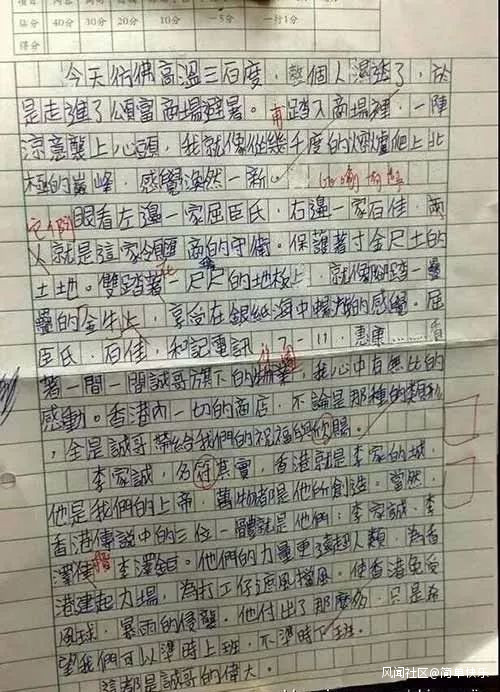 佔分 40分 30分 20分 10分 -5分 一行1分
得分
今天彷佛高溫三百度,整個人濕透了,於
是走進了頌富商場避暑。再踏入商場裡,一陣
涼意襲上心頭,我就像從幾千度的火爐爬上北
極的巔峰,感覺渙然一新。
眼看左邊一家屈臣氏,右邊一家百佳,兩
人就是這家商的守衛。保護著寸金尺土的
土地。雙踏著一尺尺的地板上,就像腳踏一疊
疊的「金牛」,享受在銀紙海中的感覺。屈
臣氏,百佳,和記電訊,7-11,惠康……看
著一間一間誠哥旗下的,我心中有無比的
感動。香港內一切的商店,不論是那種的類型
,全是誠哥帶給我們的祝福與恩賜。
李家誠,名符其實,香港就是李家的城,
他是我們的上帝,萬物都是他所創造。當然,
香港傳說中的三位一體就是他們:李家誠,李
澤楷,李澤鉅。他們的力量更強超人類,為香
港建起力場,為打工仔遮風擋風,使香港免受
風球,暴雨的侵襲。他付出了那麼多,只是希
望我們可以準時上班,不準時下班。
這都是誠哥的偉大。
风闻社区@简单快乐